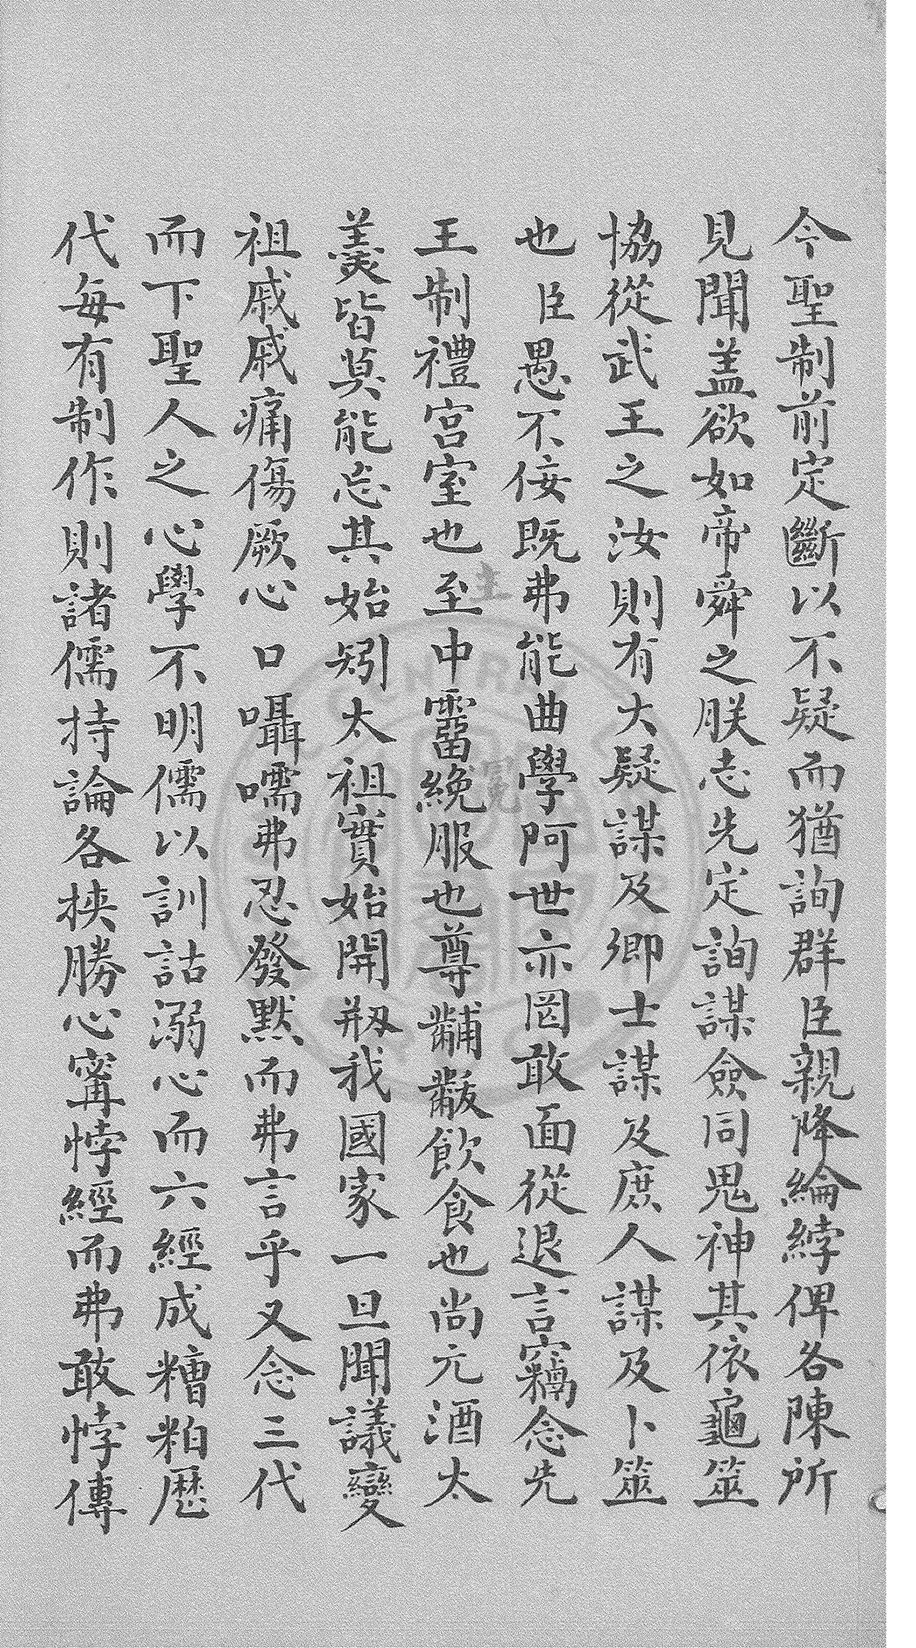 今聖制前定斷以不疑而猶詢群臣親降綸綍俾各陳所
見聞盖欲如帝舜之朕志先定詢謀僉同鬼神其依龜筮
協從武王之汝則有大疑謀及卿士謀及庶人謀及卜筮
也臣愚不佞既弗能曲學阿世亦罔敢面從退言竊念先
王制禮宮室也至中霤綪服也尊黼黻飲食也尚元酒太
羹皆莫能忘其始矧太祖實始開刱我國家一旦聞議變
祖戚戚痛傷厥心口囁嚅弗忍發默而弗言乎又念三代
而下聖人之心學不明儒以訓詁溺心而六經成糟粕歷
代每有制作則諸儒持論各挾勝心寗悖經而弗敢悖傳
主
冕
CENTRAL